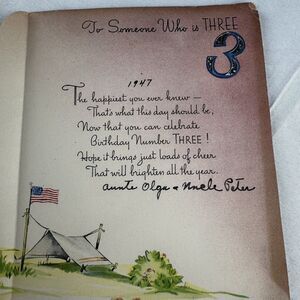 To Someone Who is THREE
3
1947
The happiest you ever knew —
That's what this day should be,
Now that you can celebrate
Birthday Number THREE!
Hope it brings just loads of cheer
That will brighten all the year.
Aunte Olga & Uncle Peter